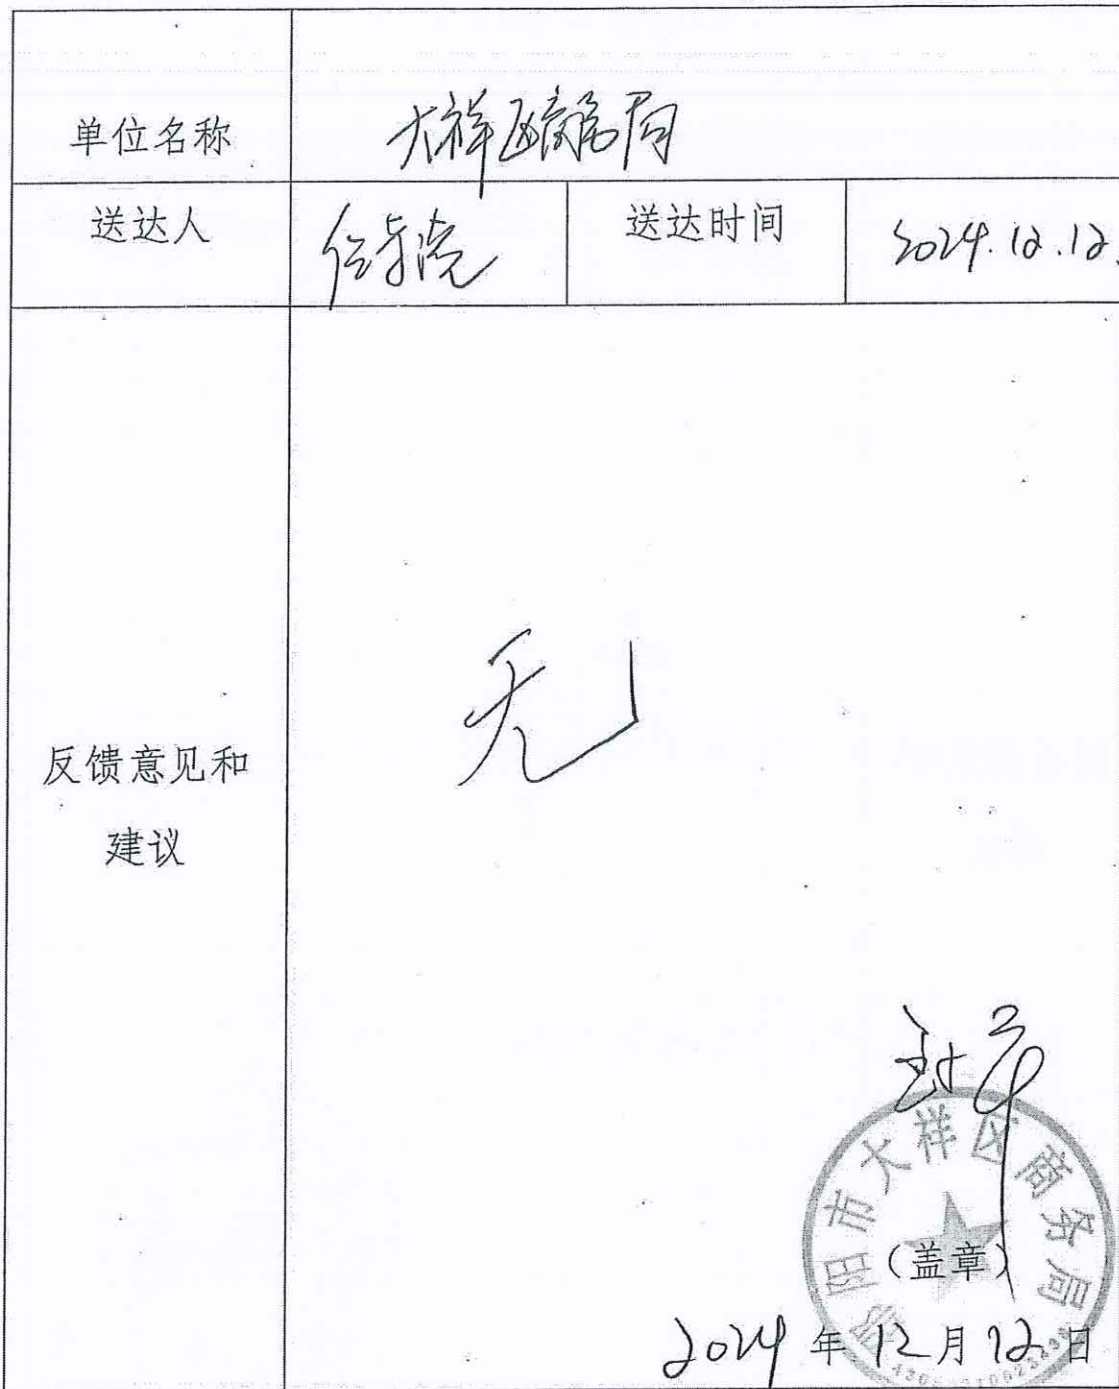 单位名称 大祥区商务局
送达人 送达时间 2024.12.12.
无
反馈意见和
建议
邵阳市大祥区商务局
（盖章）
2024年12月12日